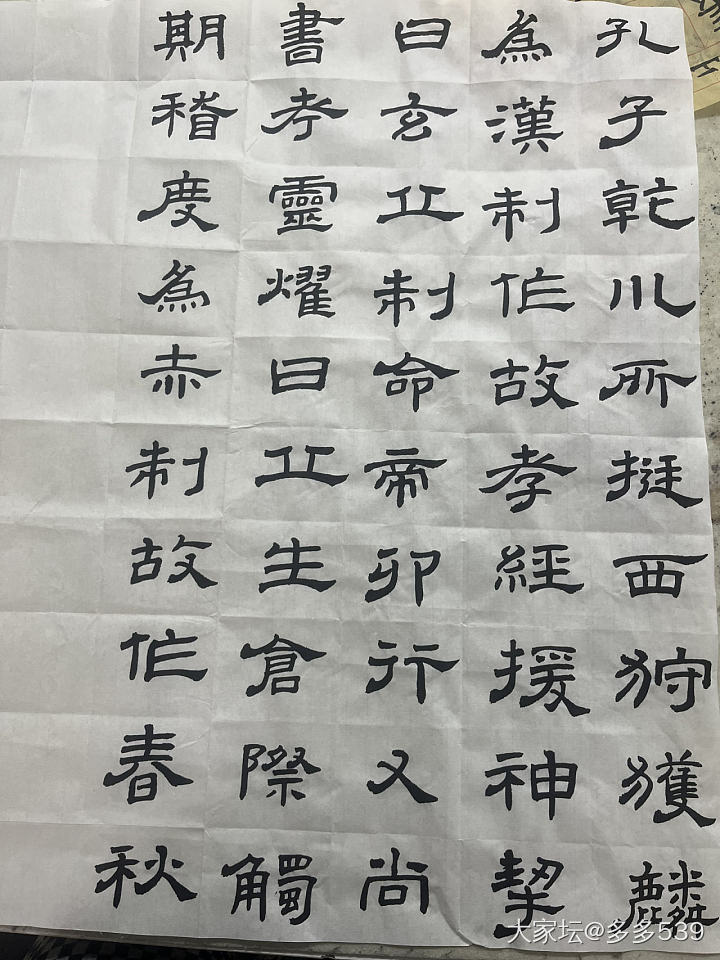 孔子乾㠭所挻西狩獲麟
為漢制作故孝經援神挈
曰玄丘制命帝卯行又尚
書考靈燿曰丘生倉際觸
期稽度為赤制故作春秋
大家坛@多多539